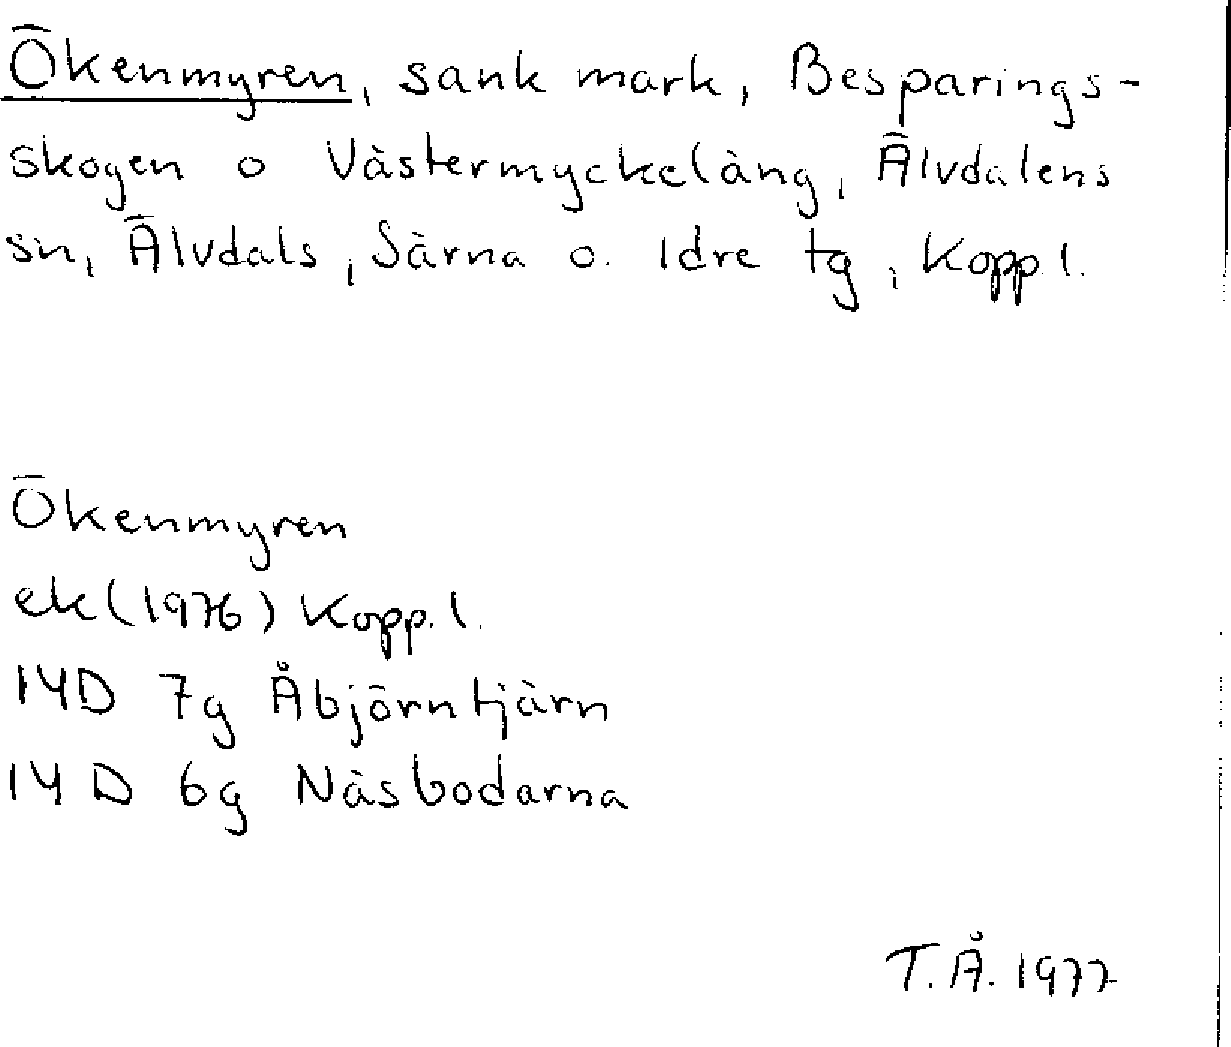 Ökenmyren, sank mark, Besparings-
skogen o Västermyckeläng, Älvdalens
sn, Älvdals, Särna o. Idre tg, Kopp. l.
Ökenmyren
ek (1976) Kopp. l.
14D 7g Åbjörntjärn
14D 6g Näsbodarna
T.Å. 1977